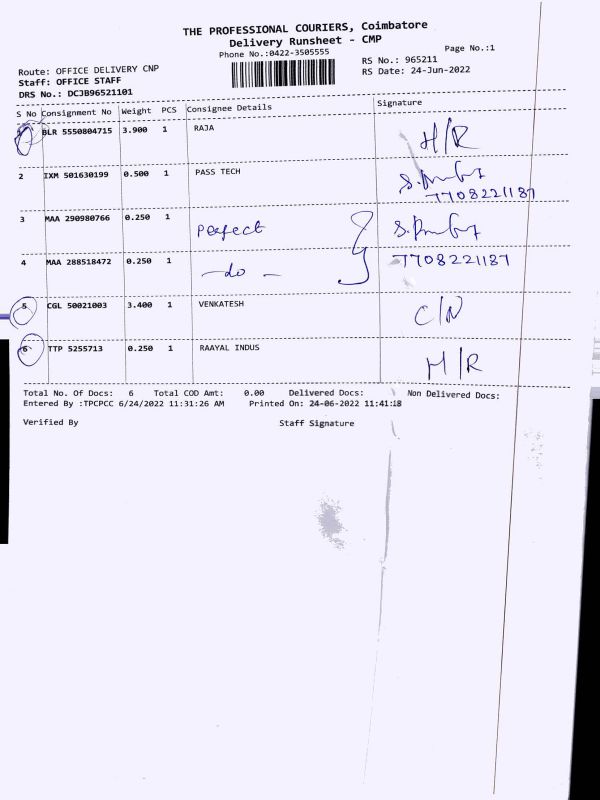 THE PROFESSIONAL COURIERS, Coimbatore
Delivery Runsheet - CMP
Phone No.:0422-3505555
Page No.:1
Route: OFFICE DELIVERY CNP
RS No.: 965211
Staff: OFFICE STAFF
RS Date: 24-Jun-2022
DRS No.: DCJB96521101
S No Consignment No Weight PCS Consignee Details Signature
1 BLR 5550804715 3.900 1 RAJA H/R
2 IXM 501630199 0.500 1 PASS TECH
7708221187
3 MAA 290980766 0.250 1 Perfect
4 MAA 288518472 0.250 1 -do- 7708221187
5 CGL 50021003 3.400 1 VENKATESH C/N
6 TTP 5255713 0.250 1 RAAYAL INDUS H/R
Total No. Of Docs: 6 Total COD Amt: 0.00 Delivered Docs: Non Delivered Docs:
Entered By :TPCPCC 6/24/2022 11:31:26 AM Printed On: 24-06-2022 11:41:18
Verified By Staff Signature